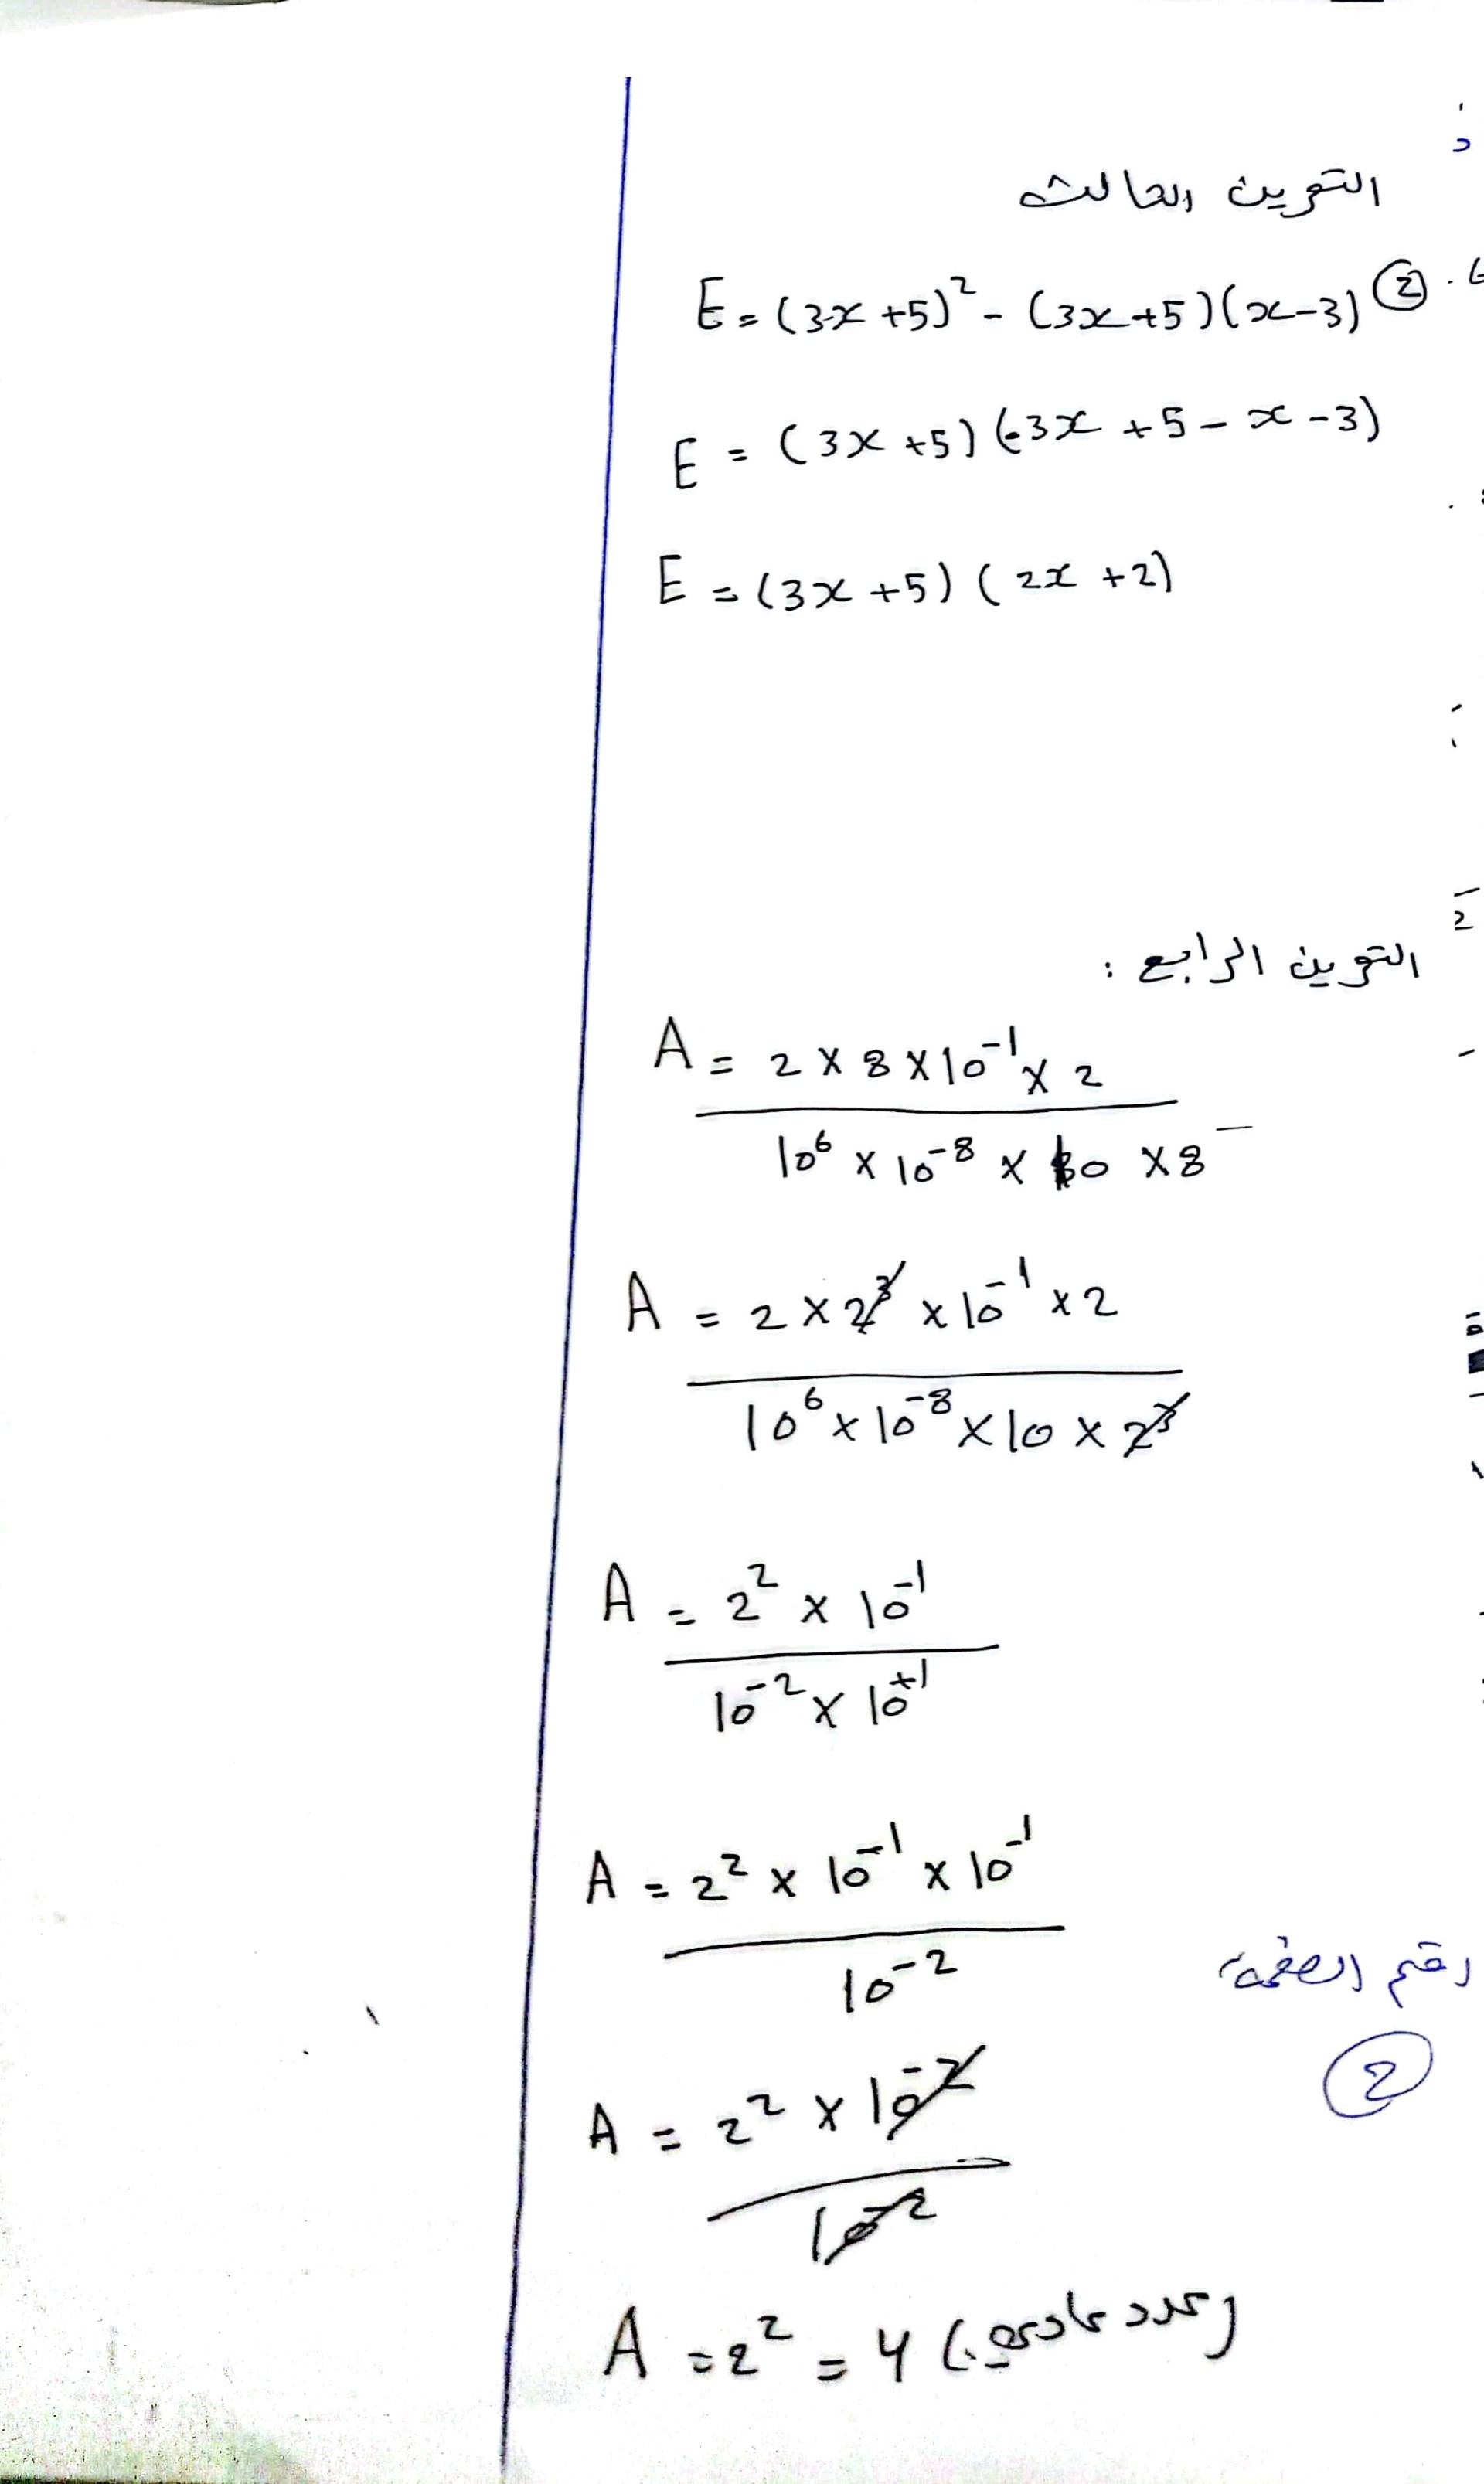 التمرين الثالث
E = (3x+5)² - (3x+5)(x-3) ②
E = (3x+5)(3x+5-x-3)
E = (3x+5)(2x+2)
التمرين الرابع :
A = 2 × 8 × 10⁻¹ × 2
10⁶ × 10⁻⁸ × 10 × 8
A = 2 × 2³ × 10⁻¹ × 2
10⁶ × 10⁻⁸ × 10 × 2³
A = 2² × 10⁻¹
10⁻² × 10⁺¹
A = 2² × 10⁻¹ × 10⁻¹
10⁻²
رقم الصفحة
②
A = 2² × 10⁻²
10⁻²
A = 2² = 4 (عدد عادي)